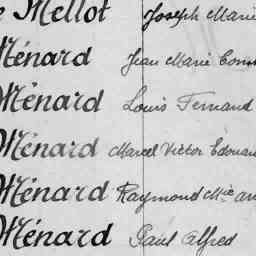 Mellot Joseph Marie
Ménard Jean Marie
Ménard Louis Fernand
Ménard Marcel Victor Edouard
Ménard Raymond Mie
Ménard Paul Alfred